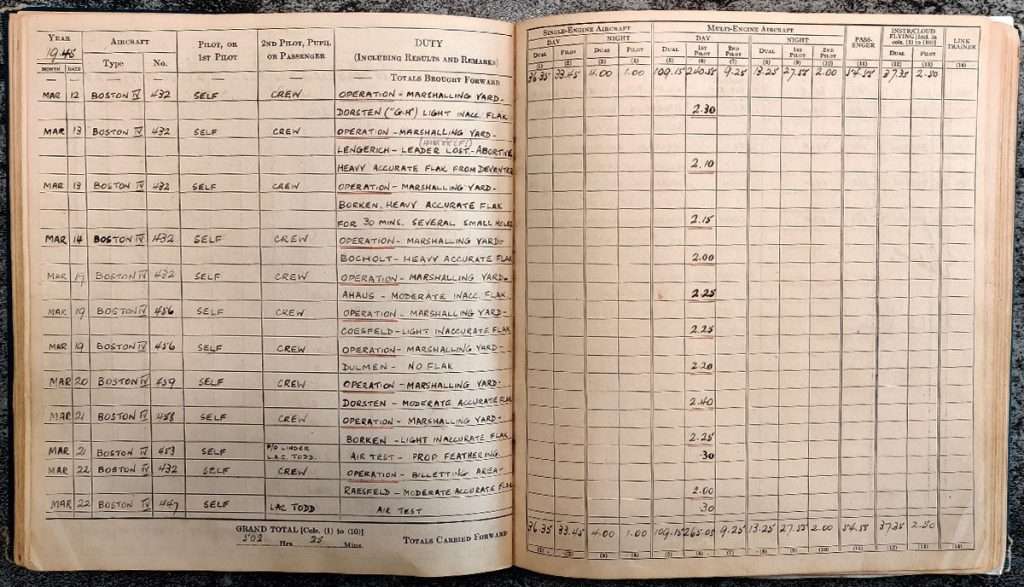 YEAR
1945
AIRCRAFT
PILOT, OR
1ST PILOT
2ND PILOT, PUPIL
OR PASSENGER
DUTY
(INCLUDING RESULTS AND REMARKS)
MONTH DATE Type No.
SINGLE-ENGINE AIRCRAFT
DAY NIGHT
DUAL PILOT DUAL PILOT
(1) (2) (3) (4)
MULTI-ENGINE AIRCRAFT
DAY NIGHT
DUAL 1ST PILOT 2ND PILOT DUAL 1ST PILOT 2ND PILOT
(5) (6) (7) (8) (9) (10)
PASS-
ENGER
(11)
INSTR/CLOUD
FLYING [Incl. in
cols. (1) to (10)]
DUAL PILOT
(12) (13)
LINK
TRAINER
(14)
— — — — — TOTALS BROUGHT FORWARD 36.35 33.45 4.00 1.00 109.15 240.55 9.25 13.25 27.55 2.00 54.55 37.35 2.50
MAR 12 BOSTON IV 432 SELF CREW OPERATION - MARSHALLING YARD -
DORSTEN ("G-H") LIGHT INACC. FLAK 2.30
MAR 13 BOSTON IV 432 SELF CREW OPERATION - MARSHALLING YARD -
(HIMSELF!)
LENGERICH - LEADER LOST - ABORTIVE
HEAVY ACCURATE FLAK FROM DEVENTER 2.10
MAR 13 BOSTON IV 432 SELF CREW OPERATION - MARSHALLING YARD -
BORKEN. HEAVY ACCURATE FLAK
FOR 30 MINS. SEVERAL SMALL HOLES 2.15
MAR 14 BOSTON IV 432 SELF CREW OPERATION - MARSHALLING YARD -
BOCHOLT - HEAVY ACCURATE FLAK 2.00
MAR 19 BOSTON IV 432 SELF CREW OPERATION - MARSHALLING YARD -
AHAUS - MODERATE INACC. FLAK 2.25
MAR 19 BOSTON IV 456 SELF CREW OPERATION - MARSHALLING YARD -
COESFELD - LIGHT INACCURATE FLAK 2.25
MAR 19 BOSTON IV 456 SELF CREW OPERATION - MARSHALLING YARD -
DULMEN - NO FLAK 2.20
MAR 20 BOSTON IV 459 SELF CREW OPERATION - MARSHALLING YARD -
DORSTEN - MODERATE ACCURATE FLAK 2.40
MAR 21 BOSTON IV 458 SELF CREW OPERATION - MARSHALLING YARD -
BORKEN - LIGHT INACCURATE FLAK 2.25
MAR 21 BOSTON IV 453 SELF P/O LINDER L.A.C. TODD. AIR TEST - PROP. FEATHERING .30
MAR 22 BOSTON IV 432 SELF CREW OPERATION - BILLETTING AREA -
RAESFELD - MODERATE ACCURATE FLAK 2.00
MAR 22 BOSTON IV 447 SELF LAC TODD AIR TEST .30
GRAND TOTAL [Cols. (1) to (10)]
502 Hrs. 25 Mins.
TOTALS CARRIED FORWARD 36.35 33.45 4.00 1.00 109.15 265.05 9.25 13.25 27.55 2.00 54.55 37.35 2.50
(1) (2) (3) (4) (5) (6) (7) (8) (9) (10) (11) (12) (13) (14)